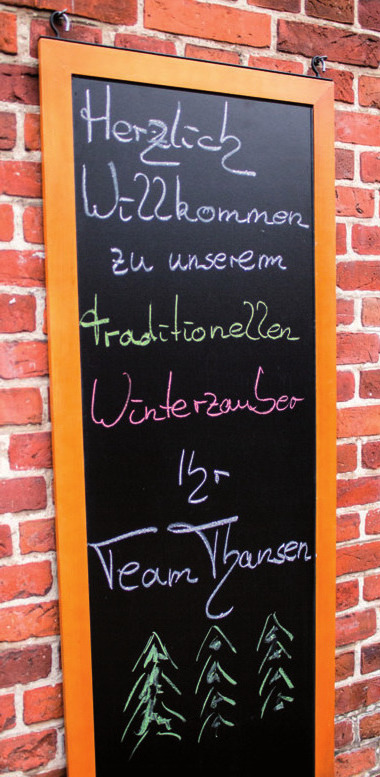 Herzlich
Willkommen
zu unserem
traditionellen
Winterzauber
Ihr
Team Thansen